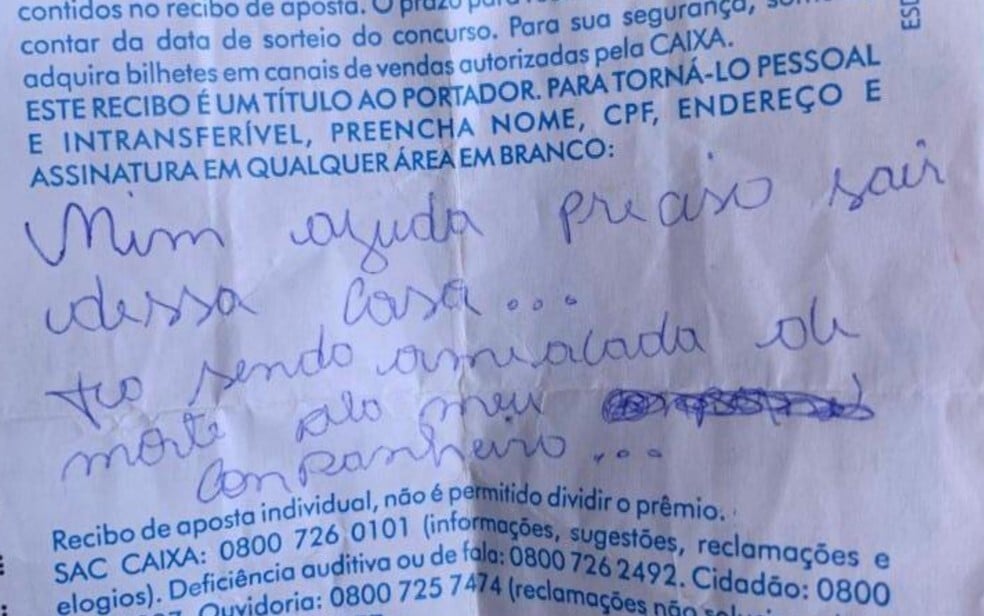 contidos no recibo de aposta. O prazo
contar da data de sorteio do concurso. Para sua segurança,
adquira bilhetes em canais de vendas autorizadas pela CAIXA.
ESTE RECIBO É UM TÍTULO AO PORTADOR. PARA TORNÁ-LO PESSOAL
E INTRANSFERÍVEL, PREENCHA NOME, CPF, ENDEREÇO E
ASSINATURA EM QUALQUER ÁREA EM BRANCO:
Mim ajuda preciso sair
dessa casa...
to sendo amiaçada de
morte pelo meu
companheiro...
Recibo de aposta individual, não é permitido dividir o prêmio.
SAC CAIXA: 0800 726 0101 (informações, sugestões, reclamações e
elogios). Deficiência auditiva ou de fala: 0800 726 2492. Cidadão: 0800
Ouvidoria: 0800 725 7474 (reclamações não